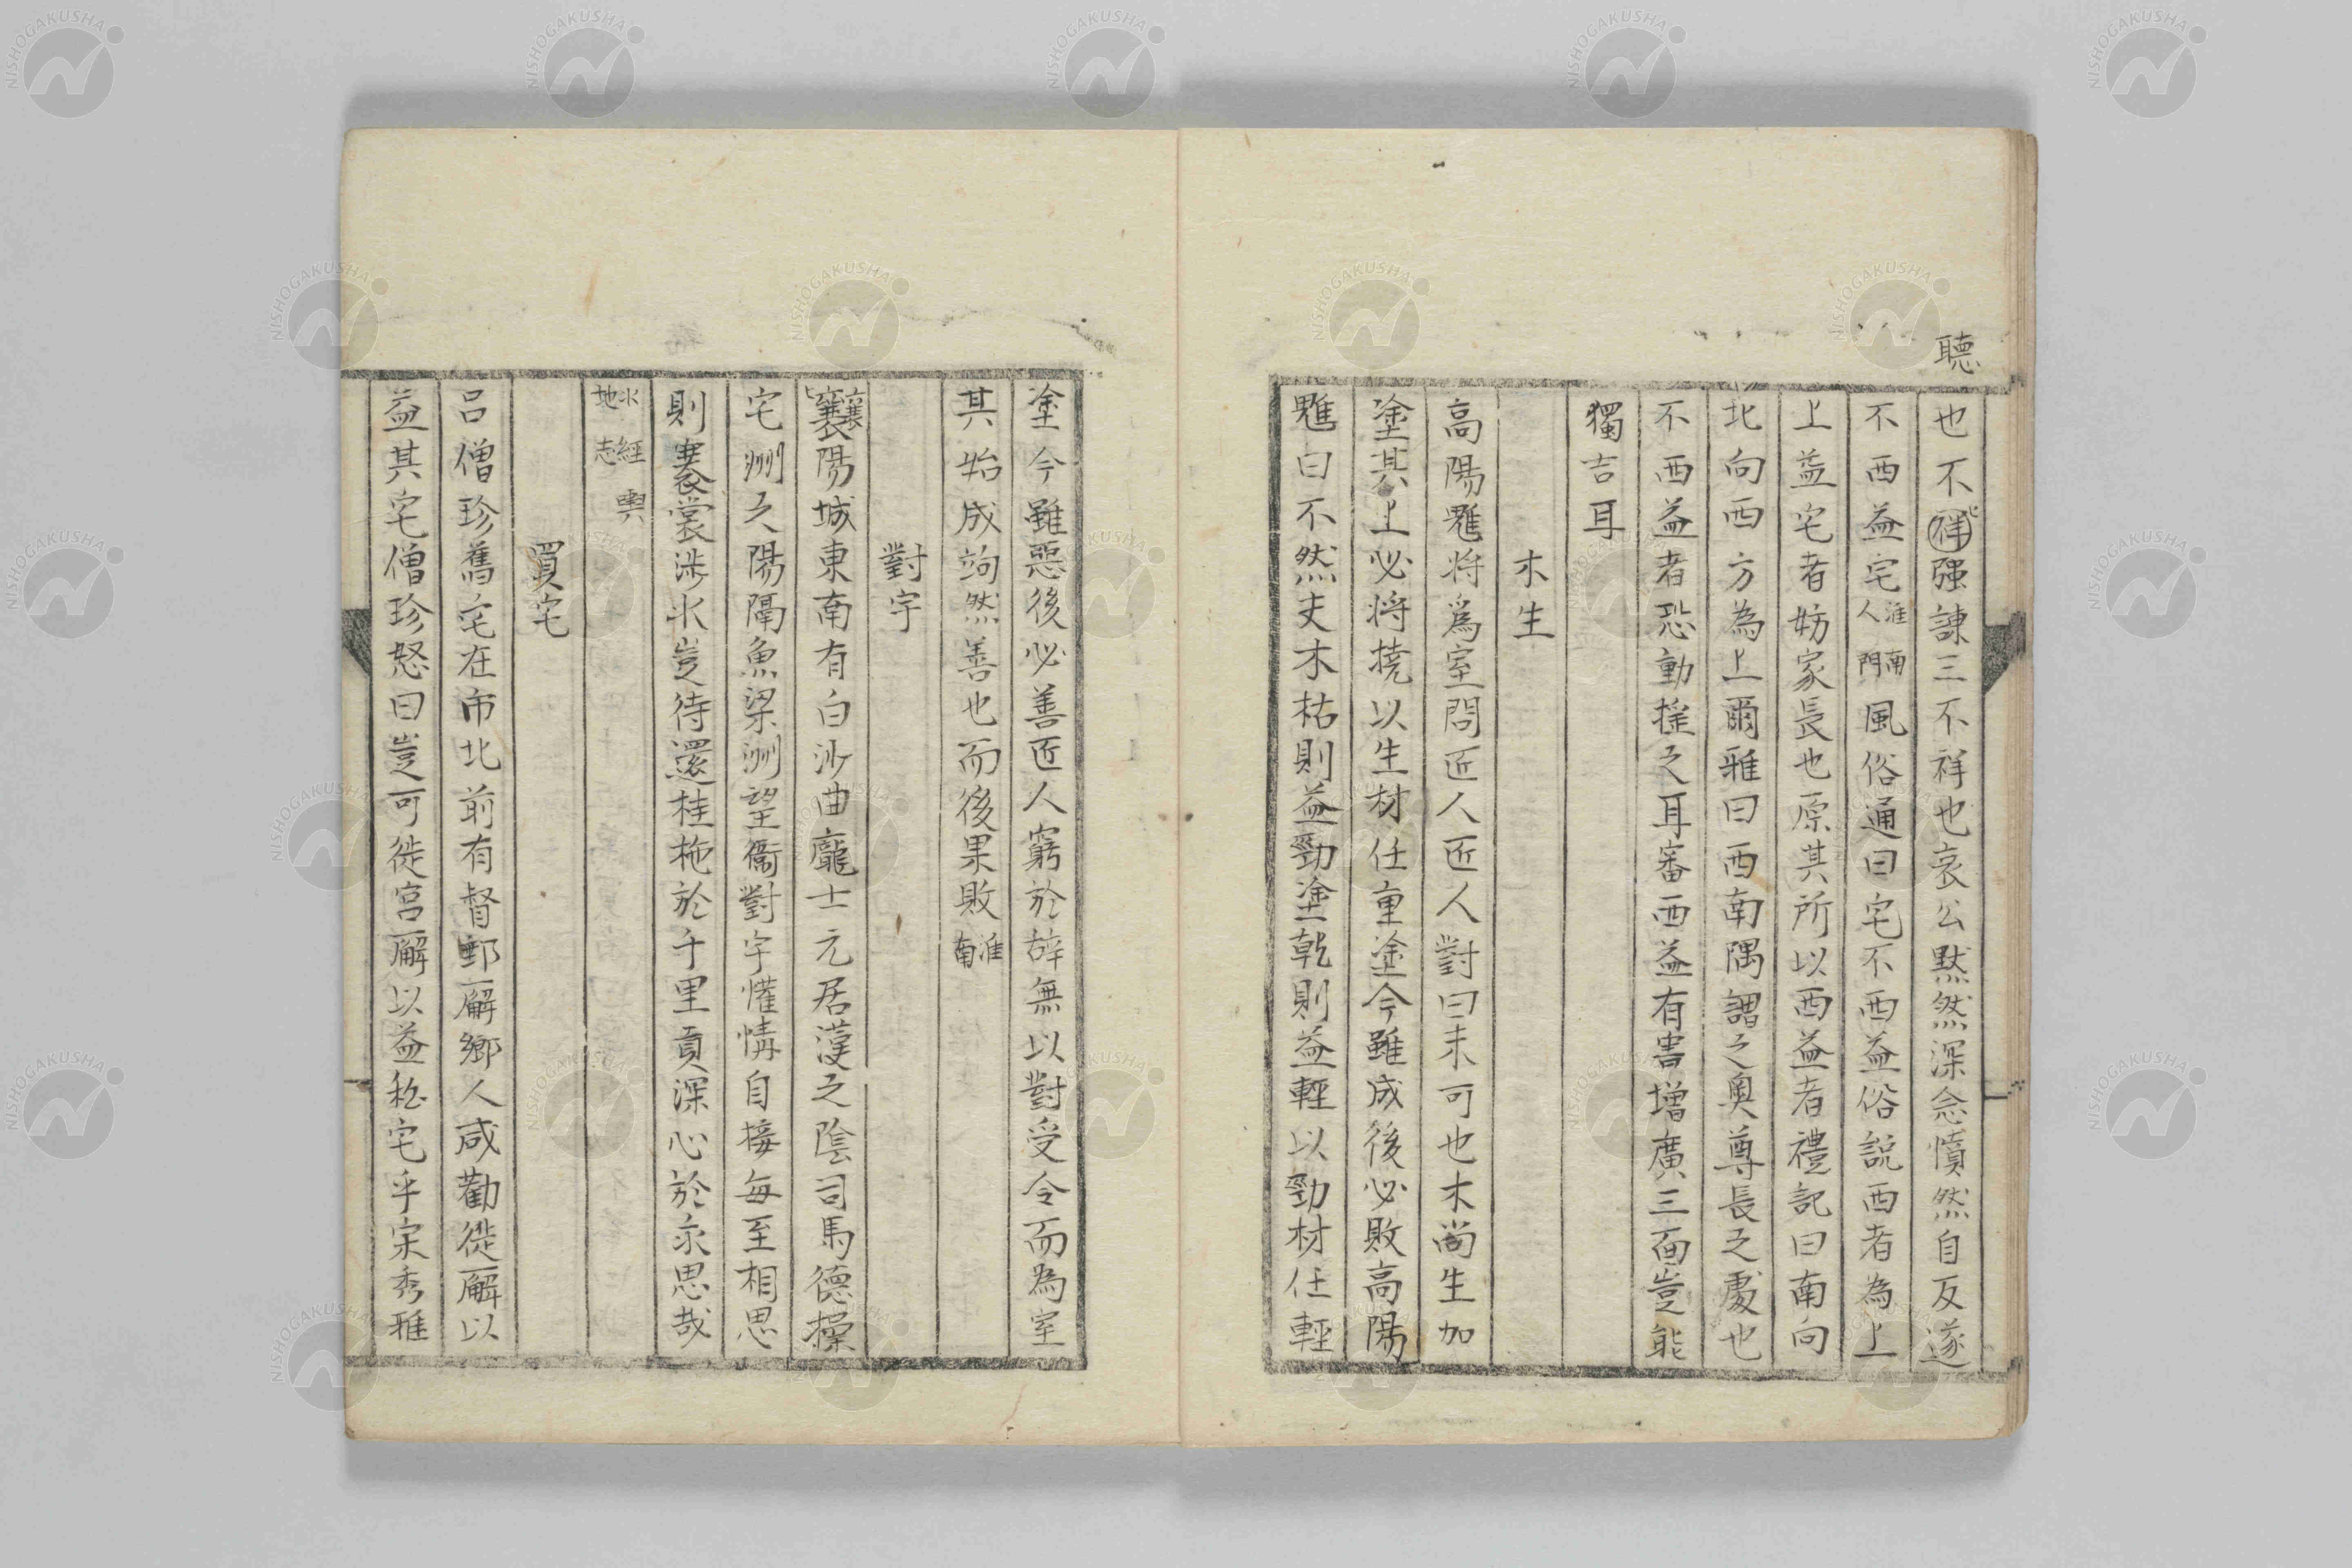 聽
也不祥强諌三不祥也哀公黙然深念憤然自反遂
不西益宅淮南人門風俗通曰宅不西益俗説西者為上
上益宅者妨家長也原其所以西益者禮記曰南向
北向西方為上爾雅曰西南隅謂之奥尊長之處也
不西益者恐動揺之耳審西益有害增廣三面豈能
獨吉耳
木生
高陽魋将爲室問匠人匠人對曰未可也木尚生加
塗其上必将撓以生材任重塗今雖成後必敗高陽
魋曰不然丈木枯則益勁塗乾則益輕以勁材任輕
塗今雖惡後必善匠人窮於辞無以對受令而為室
其始成竘然善也而後果敗淮南
對宇
襄陽城東南有白沙曲龐士元居漢之陰司馬德操
宅洲之陽隔魚梁洲望衡對宇懽情自接毎至相思
則褰裳渉水豈待還桂柂於千里貢深心於永思哉
水經輿地志
買宅
呂僧珍舊宅在市北前有督郵廨鄉人咸勸徙廨以
益其宅僧珍怒曰豈可徙官廨以益私宅乎宋秀雅